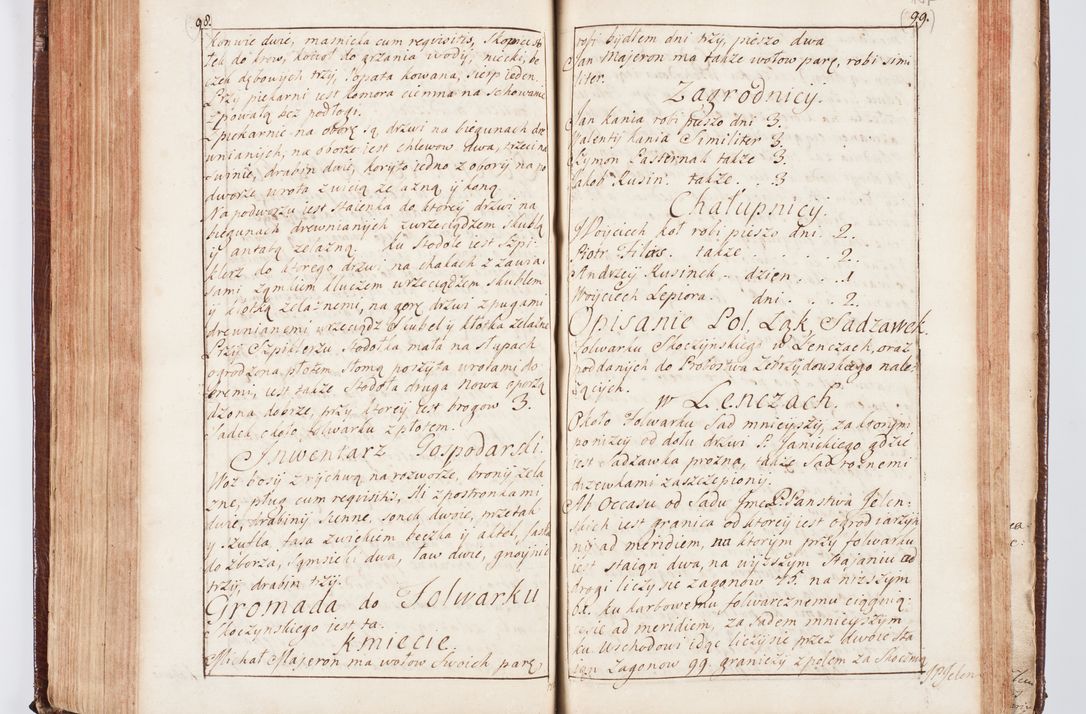 98.
Konwie dwie, maniełe cum requisitis, skopiec
łek do krow, kotioł do grzania wody, niecki, be
czek dębowych trzy, łopata kowana, sierp ieden.
Przy piekarni iest komora ciemna na schowanie
z powałą bez podłogi.
Z piekarnie na oborę są drzwi na biegunach dre
wnianych, na oborze iest chlewow dwa, trzeci na
owinie, drabin dwie, koryto iedno z obory na po
dworze wrota z wicią żelazną y koną
Na podworzu iest staienka do ktorey drzwi na
biegunach drewnianych z wrzeciądzem, skublą
y antabą żelazną. ku stodole iest Szpi-
klerz do ktorego drzwi na chakach z zawia
sami zamkiem kluczem wrzeciądzem skublem
y kłotką żelaznemi, na gorę drzwi z pugami
drewnianemi wrzeciądz skubel y kłotka żelazne
Przy Szpiklerzu stodołka mała na słupach
ogrodzona płotem słomą poszyta wrotami do
bremi, iest także stodoła druga nowa oporzą
dzona dobrze, przy ktorey iest brogow 3.
Sadek około folwarku z płotem.
Inwentarz Gospodarski.
Woz bosy z rychwą na rozworze, brony żela
zne, pług cum requisitis, sli z postronkami
dwie, drabiny sienne, sonek dwoie, przetak
y szufla fasa z wiekiem beczka y
do zborza, sąmsieki dwa, ław dwie, gnoynic
trzy, drabin trzy.
Gromada do Folwarku
Skoczynskiego iest ta.
Kmiecie
Michał Majeron ma wołow swoich parę,
99.
robi bydłem dni trzy, pieszo dwa
Jan Majeron ma także wołow parę, robi simi
liter.
Zagrodnicy.
Jan Kania robi pieszo dni 3.
Walenty Kania Similiter 3.
Szymon Pasternak także 3.
Jakob Rusin. także. . . 3
Chałupnicy.
Woyciech Koł robi pieszo dni. 2.
Piotr Filas. także . . . . 2.
Andrzey Rusinek. dzien . . . 1
Woyciech Lepiora. dni . . . 2.
Opisanie Pol, Łąk, Sadzawek
folwarku Skoczynskiego w Lenczach, oraz
poddanych do Probostwa Zebrzydowskiego nale
żących.
w Lenczach.
Około folwarku Sad mnieyszy, za ktorym
poniżey od dołu drzwi P. Janickiego gdzie
iest Sadzawka prożna, także Sad rożnemi
drzewkami zaszczepiony.
Ab Occasu od Sadu Jmci P. Panstwa Jelen-
skich iest granica od ktorey iest ogrod iarzyn
ny ad meridiem, na ktorym przy folwarku
iest staiąn dwa, na wyższym staianiu ad
drogi liczy sie zagonow 75. na niższym
62. ku karbowemu folwarcznemu ciągnią:
cysie ad meridiem, za Sadem mnieyszym
ku wschodowi idąc liczy sie przez dwoie sta
ian Zagonow 99. graniczy z polem za Skoczniow
JP. Jelen